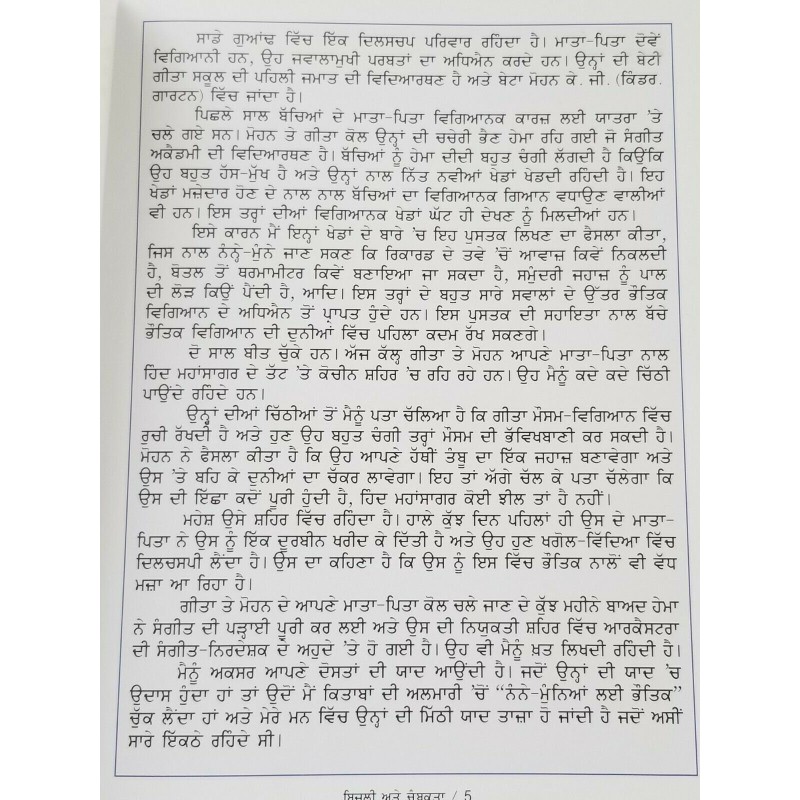 ਸਾਡੇ ਗੁਆਂਢ ਵਿੱਚ ਇੱਕ ਦਿਲਸਚਪ ਪਰਿਵਾਰ ਰਹਿੰਦਾ ਹੈ। ਮਾਤਾ-ਪਿਤਾ ਦੋਵੇਂ
ਵਿਗਿਆਨੀ ਹਨ, ਉਹ ਜਵਾਲਾਮੁਖੀ ਪਰਬਤਾਂ ਦਾ ਅਧਿਐਨ ਕਰਦੇ ਹਨ। ਉਨ੍ਹਾਂ ਦੀ ਬੇਟੀ
ਗੀਤਾ ਸਕੂਲ ਦੀ ਪਹਿਲੀ ਜਮਾਤ ਦੀ ਵਿਦਿਆਰਥਣ ਹੈ ਅਤੇ ਬੇਟਾ ਮੋਹਨ ਕੇ. ਜੀ. (ਕਿੰਡਰ.
ਗਾਰਟਨ) ਵਿੱਚ ਜਾਂਦਾ ਹੈ।
ਪਿਛਲੇ ਸਾਲ ਬੱਚਿਆਂ ਦੇ ਮਾਤਾ-ਪਿਤਾ ਵਿਗਿਆਨਕ ਕਾਰਜ਼ ਲਈ ਯਾਤਰਾ 'ਤੇ
ਚਲੇ ਗਏ ਸਨ। ਮੋਹਨ ਤੇ ਗੀਤਾ ਕੋਲ ਉਨ੍ਹਾਂ ਦੀ ਚਚੇਰੀ ਭੈਣ ਹੇਮਾ ਰਹਿ ਗਈ ਜੋ ਸੰਗੀਤ
ਅਕੈਡਮੀ ਦੀ ਵਿਦਿਆਰਥਣ ਹੈ। ਬੱਚਿਆਂ ਨੂੰ ਹੇਮਾ ਦੀਦੀ ਬਹੁਤ ਚੰਗੀ ਲੱਗਦੀ ਹੈ ਕਿਉਂਕਿ
ਉਹ ਬਹੁਤ ਹੱਸ-ਮੁੱਖ ਹੈ ਅਤੇ ਉਨ੍ਹਾਂ ਨਾਲ ਨਿੱਤ ਨਵੀਆਂ ਖੇਡਾਂ ਖੇਡਦੀ ਰਹਿੰਦੀ ਹੈ। ਇਹ
ਖੇਡਾਂ ਮਜ਼ੇਦਾਰ ਹੋਣ ਦੇ ਨਾਲ ਨਾਲ ਬੱਚਿਆਂ ਦਾ ਵਿਗਿਆਨਕ ਗਿਆਨ ਵਧਾਉਣ ਵਾਲੀਆਂ
ਵੀ ਹਨ। ਇਸ ਤਰ੍ਹਾਂ ਦੀਆਂ ਵਿਗਿਆਨਕ ਖੇਡਾਂ ਘੱਟ ਹੀ ਦੇਖਣ ਨੂੰ ਮਿਲਦੀਆਂ ਹਨ।
ਇਸੇ ਕਾਰਨ ਮੈਂ ਇਨ੍ਹਾਂ ਖੇਡਾਂ ਦੇ ਬਾਰੇ 'ਚ ਇਹ ਪੁਸਤਕ ਲਿਖਣ ਦਾ ਫੈਸਲਾ ਕੀਤਾ,
ਜਿਸ ਨਾਲ ਨੰਨ੍ਹੇ-ਮੁੰਨੇ ਜਾਣ ਸਕਣ ਕਿ ਰਿਕਾਰਡ ਦੇ ਤਵੇ 'ਚੋਂ ਆਵਾਜ਼ ਕਿਵੇਂ ਨਿਕਲਦੀ
ਹੈ, ਬੋਤਲ ਤੋਂ ਥਰਮਾਮੀਟਰ ਕਿਵੇਂ ਬਣਾਇਆ ਜਾ ਸਕਦਾ ਹੈ, ਸਮੁੰਦਰੀ ਜਹਾਜ਼ ਨੂੰ ਪਾਲ
ਦੀ ਲੋੜ ਕਿਉਂ ਪੈਂਦੀ ਹੈ, ਆਦਿ। ਇਸ ਤਰ੍ਹਾਂ ਦੇ ਬਹੁਤ ਸਾਰੇ ਸਵਾਲਾਂ ਦੇ ਉੱਤਰ ਭੌਤਿਕ
ਵਿਗਿਆਨ ਦੇ ਅਧਿਐਨ ਤੋਂ ਪ੍ਰਾਪਤ ਹੁੰਦੇ ਹਨ। ਇਸ ਪੁਸਤਕ ਦੀ ਸਹਾਇਤਾ ਨਾਲ ਬੱਚੇ
ਭੌਤਿਕ ਵਿਗਿਆਨ ਦੀ ਦੁਨੀਆਂ ਵਿੱਚ ਪਹਿਲਾ ਕਦਮ ਰੱਖ ਸਕਣਗੇ।
ਦੋ ਸਾਲ ਬੀਤ ਚੁੱਕੇ ਹਨ। ਅੱਜ ਕੱਲ੍ਹ ਗੀਤਾ ਤੇ ਮੋਹਨ ਆਪਣੇ ਮਾਤਾ-ਪਿਤਾ ਨਾਲ
ਹਿੰਦ ਮਹਾਂਸਾਗਰ ਦੇ ਤੱਟ 'ਤੇ ਕੋਚੀਨ ਸ਼ਹਿਰ 'ਚ ਰਹਿ ਰਹੇ ਹਨ। ਉਹ ਮੈਨੂੰ ਕਦੇ ਕਦੇ ਚਿੱਠੀ
ਪਾਉਂਦੇ ਰਹਿੰਦੇ ਹਨ।
ਉਨ੍ਹਾਂ ਦੀਆਂ ਚਿੱਠੀਆਂ ਤੋਂ ਮੈਨੂੰ ਪਤਾ ਚੱਲਿਆ ਹੈ ਕਿ ਗੀਤਾ ਮੌਸਮ-ਵਿਗਿਆਨ ਵਿੱਚ
ਰੁਚੀ ਰੱਖਦੀ ਹੈ ਅਤੇ ਹੁਣ ਉਹ ਬਹੁਤ ਚੰਗੀ ਤਰ੍ਹਾਂ ਮੌਸਮ ਦੀ ਭੱਵਿਖਬਾਣੀ ਕਰ ਸਕਦੀ ਹੈ।
ਮੋਹਨ ਨੇ ਫੈਸਲਾ ਕੀਤਾ ਹੈ ਕਿ ਉਹ ਆਪਣੇ ਹੱਥੀਂ ਤੰਬੂ ਦਾ ਇੱਕ ਜਹਾਜ਼ ਬਣਾਵੇਗਾ ਅਤੇ
ਉਸ 'ਤੇ ਬਹਿ ਕੇ ਦੁਨੀਆਂ ਦਾ ਚੱਕਰ ਲਾਵੇਗਾ। ਇਹ ਤਾਂ ਅੱਗੇ ਚੱਲ ਕੇ ਪਤਾ ਚੱਲੇਗਾ ਕਿ
ਉਸ ਦੀ ਇੱਛਾ ਕਦੋਂ ਪੂਰੀ ਹੁੰਦੀ ਹੈ, ਹਿੰਦ ਮਹਾਂਸਾਗਰ ਕੋਈ ਝੀਲ ਤਾਂ ਹੈ ਨਹੀਂ।
ਮਹੇਸ਼ ਉਸੇ ਸ਼ਹਿਰ ਵਿੱਚ ਰਹਿੰਦਾ ਹੈ। ਹਾਲੇ ਕੁੱਝ ਦਿਨ ਪਹਿਲਾਂ ਹੀ ਉਸ ਦੇ ਮਾਤਾ-
ਪਿਤਾ ਨੇ ਉਸ ਨੂੰ ਇੱਕ ਦੂਰਬੀਨ ਖਰੀਦ ਕੇ ਦਿੱਤੀ ਹੈ ਅਤੇ ਉਹ ਹੁਣ ਖਗੋਲ-ਵਿੱਦਿਆ ਵਿੱਚ
ਦਿਲਚਸਪੀ ਲੈਂਦਾ ਹੈ। ਉਸ ਦਾ ਕਹਿਣਾ ਹੈ ਕਿ ਉਸ ਨੂੰ ਇਸ ਵਿੱਚ ਭੌਤਿਕ ਨਾਲੋਂ ਵੀ ਵੱਧ
ਮਜ਼ਾ ਆ ਰਿਹਾ ਹੈ।
ਗੀਤਾ ਤੇ ਮੋਹਨ ਦੇ ਆਪਣੇ ਮਾਤਾ-ਪਿਤਾ ਕੋਲ ਚਲੇ ਜਾਣ ਦੇ ਕੁੱਝ ਮਹੀਨੇ ਬਾਅਦ ਹੇਮਾ
ਨੇ ਸੰਗੀਤ ਦੀ ਪੜ੍ਹਾਈ ਪੂਰੀ ਕਰ ਲਈ ਅਤੇ ਉਸ ਦੀ ਨਿਯੁਕਤੀ ਸ਼ਹਿਰ ਵਿੱਚ ਆਰਕੈਸਟਰਾ
ਦੀ ਸੰਗੀਤ-ਨਿਰਦੇਸ਼ਕ ਦੇ ਅਹੁਦੇ 'ਤੇ ਹੋ ਗਈ ਹੈ। ਉਹ ਵੀ ਮੈਨੂੰ ਖ਼ਤ ਲਿਖਦੀ ਰਹਿੰਦੀ ਹੈ।
ਮੈਨੂੰ ਅਕਸਰ ਆਪਣੇ ਦੋਸਤਾਂ ਦੀ ਯਾਦ ਆਉਂਦੀ ਹੈ। ਜਦੋਂ ਉਨ੍ਹਾਂ ਦੀ ਯਾਦ 'ਚ
ਉਦਾਸ ਹੁੰਦਾ ਹਾਂ ਤਾਂ ਉਦੋਂ ਮੈਂ ਕਿਤਾਬਾਂ ਦੀ ਅਲਮਾਰੀ 'ਚੋਂ “ਨੰਨੇ-ਮੁੰਨਿਆਂ ਲਈ ਭੌਤਿਕ”
ਚੁੱਕ ਲੈਂਦਾ ਹਾਂ ਅਤੇ ਮੇਰੇ ਮਨ ਵਿੱਚ ਉਨ੍ਹਾਂ ਦੀ ਮਿੱਠੀ ਯਾਦ ਤਾਜ਼ਾ ਹੋ ਜਾਂਦੀ ਹੈ ਜਦੋਂ ਅਸੀਂ
ਸਾਰੇ ਇੱਕਠੇ ਰਹਿੰਦੇ ਸੀ।
ਬਿਜਲੀ ਅਤੇ ਚੁੰਬਕਤਾ / 5